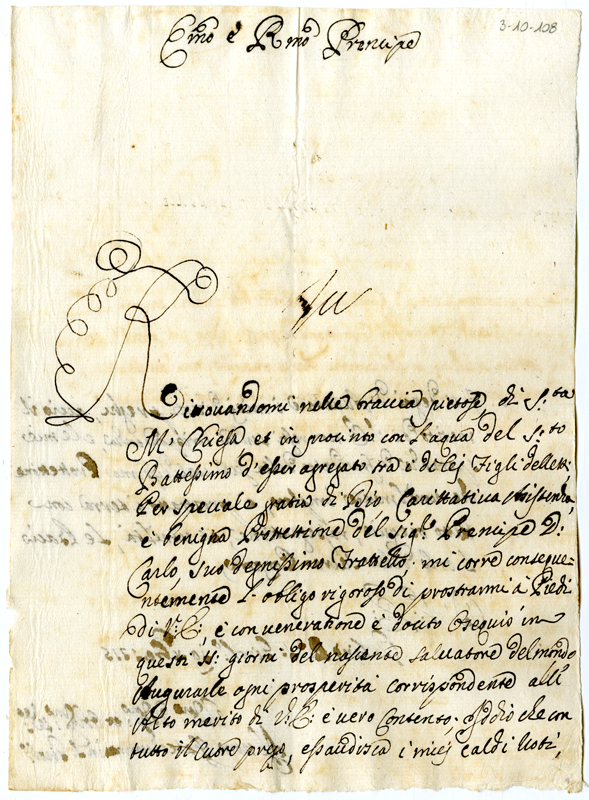 3-10-108
Emo e Rmo Prencipe
Ritrovandomi nelle braccia pietose di S.ta
M. Chiesa et in procinto con l'aqua del S.to
Battessimo d'esser agregato tra i di lej Figli diletti
per speciale gratia di Dio, Carittativa Assistenza,
e benigna Prottettione del Sig.r Prencipe D:
Carlo, suo degnissimo Frattello. mi corre conseque=
ntemente l'obligo rigoroso di prostrarmi a Piedi
di V: E:, e con veneratione e douto Osequio in
questi SS: giorni del nascente Salvatore del mondo
Augurarle ogni prosperità corrispondente all'
Alto merito di V: E: e vero Contento. a Iddio che con
tutto il Cuore prego, essaudisca i miej caldi Voti,